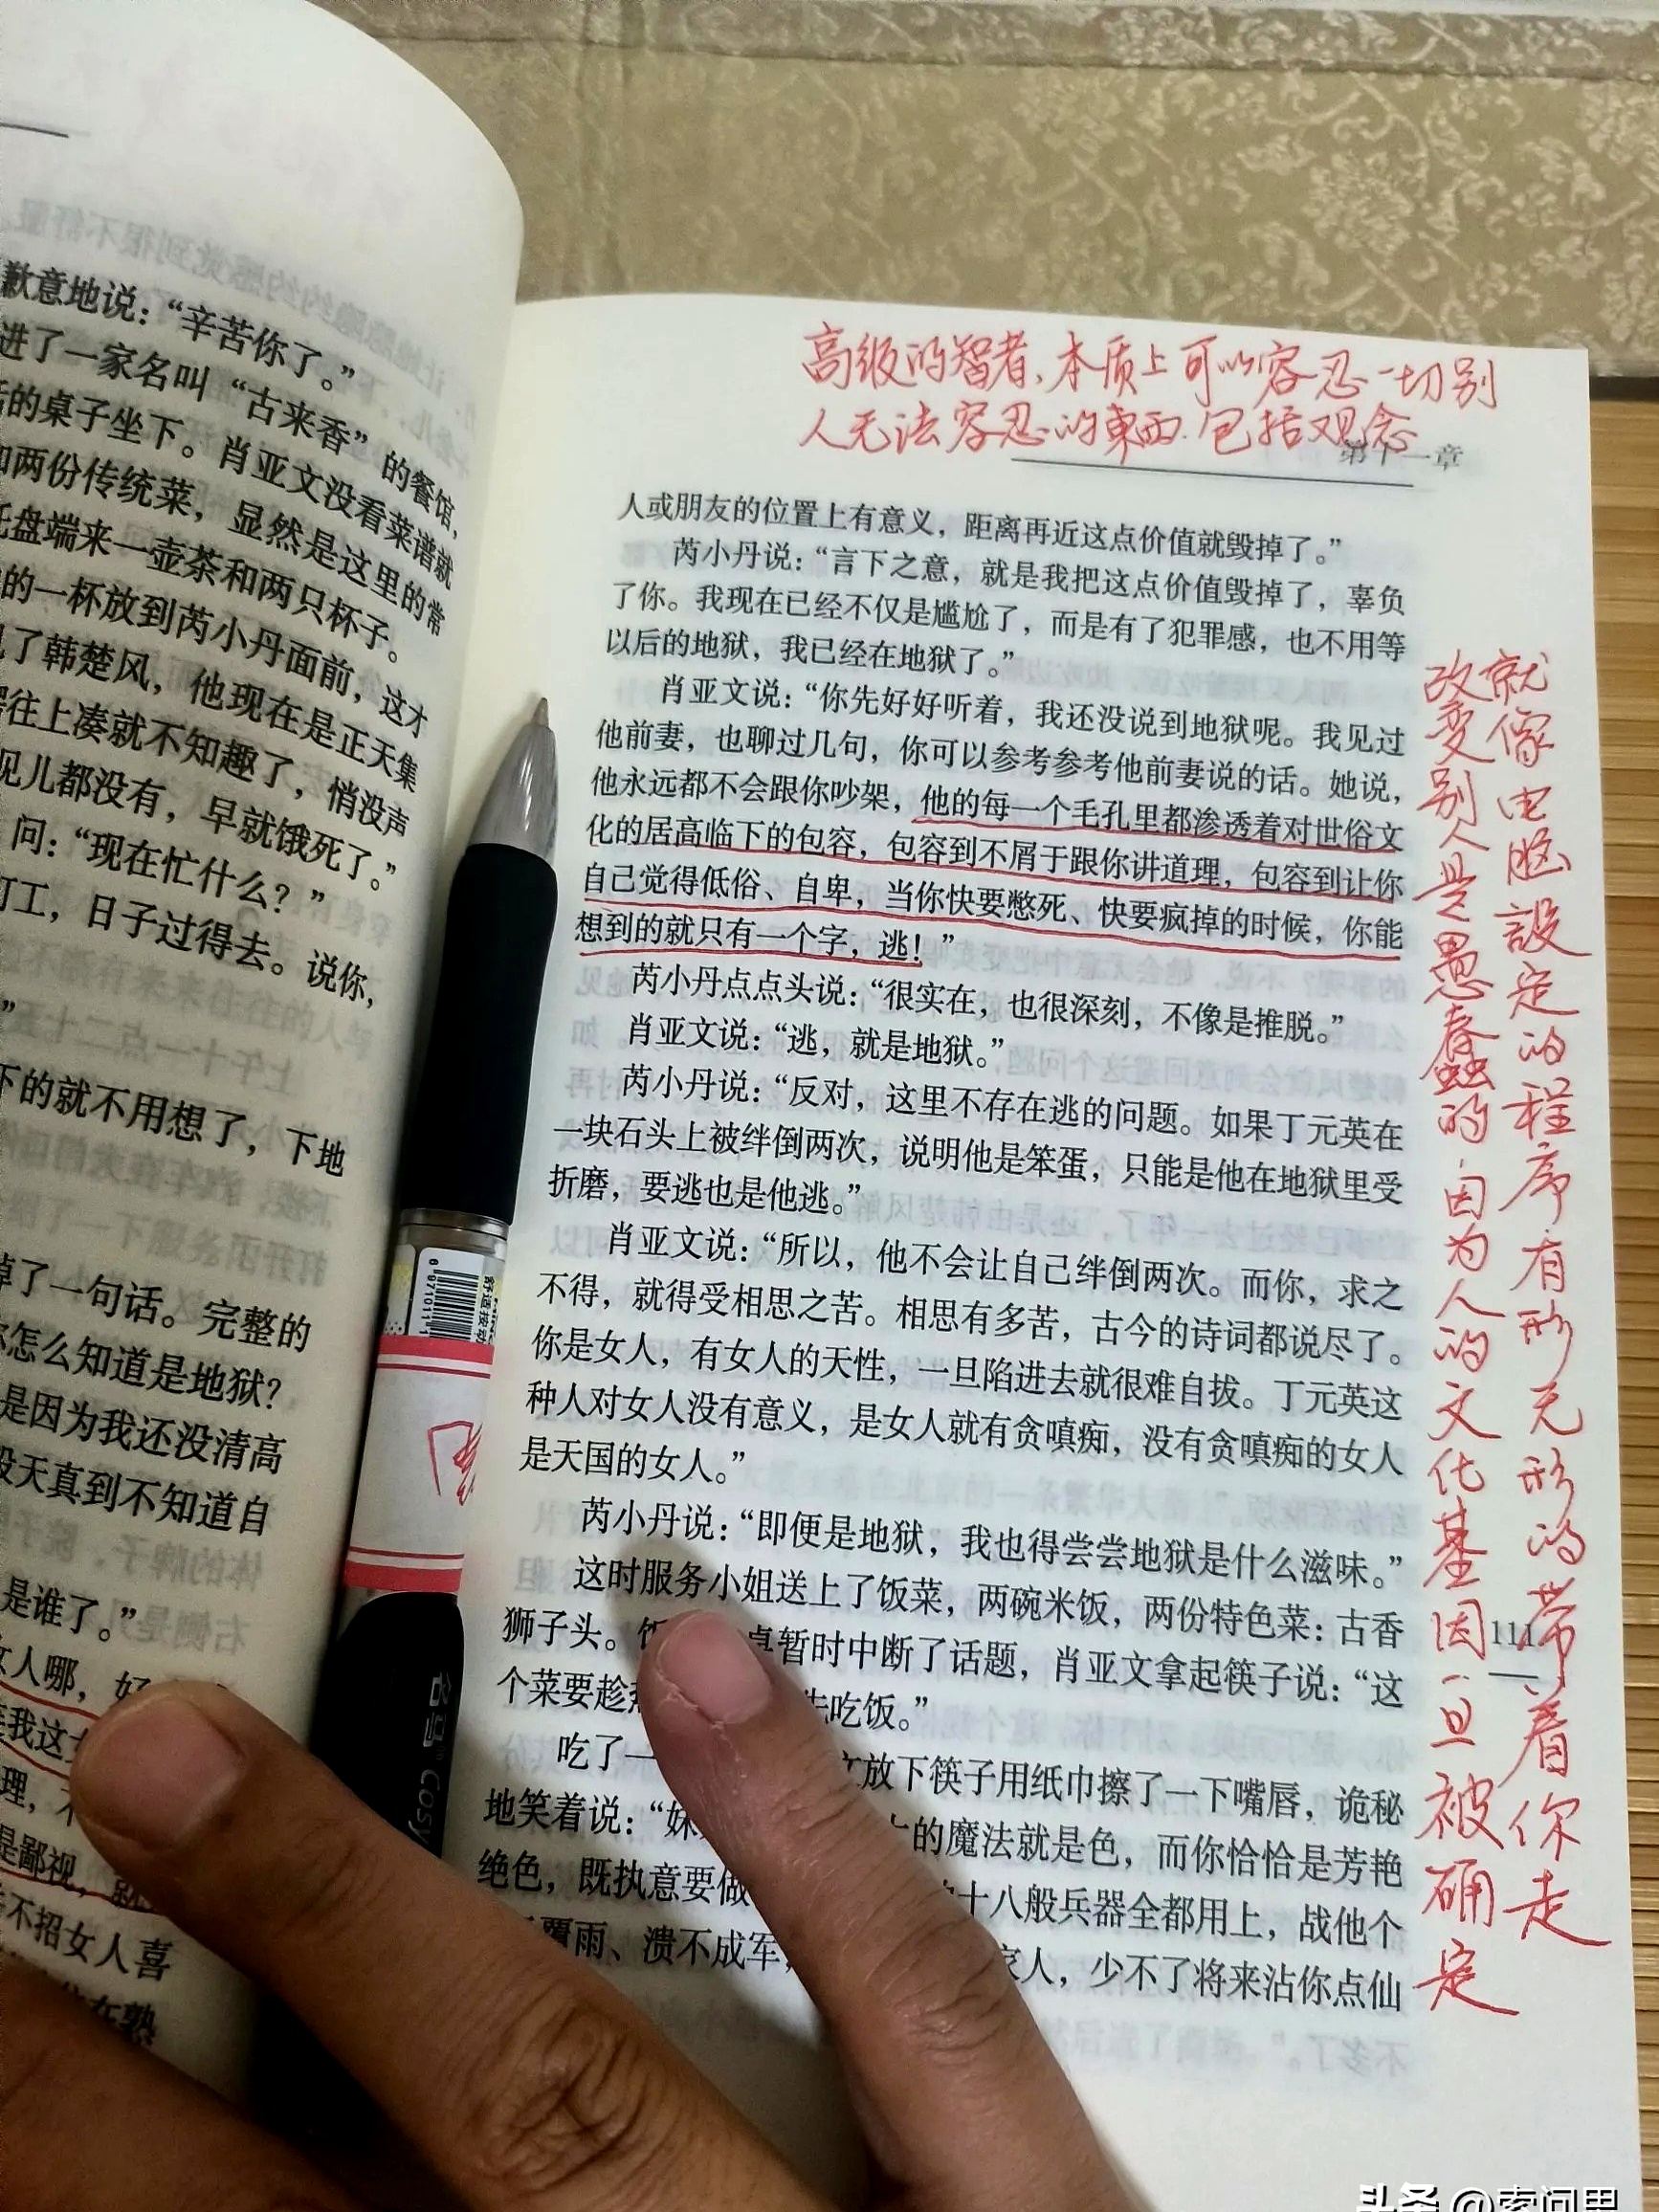 歉意地说：“辛苦你了。”
进了一家名叫“古来香”的餐馆，
的桌子坐下。肖亚文没看菜谱就
两份传统菜，显然是这里的常
托盘端来一壶茶和两只杯子。
的一杯放到芮小丹面前，这才
了韩楚风，他现在是正天集
往上凑就不知趣了，悄没声
见儿都没有，早就饿死了。”
问：“现在忙什么？”
打工，日子过得去。说你，
”
下的就不用想了，下地
掉了一句话。完整的
怎么知道是地狱？
是因为我还没清高
天真到不知道自
是谁了。”
女人哪，好
我这
理，不
是鄙视，
不招女人喜
高级的智者，本质上可以容忍一切别
人无法容忍的東西.包括观念
第十一章
人或朋友的位置上有意义，距离再近这点价值就毁掉了。”
芮小丹说：“言下之意，就是我把这点价值毁掉了，辜负
了你。我现在已经不仅是尴尬了，而是有了犯罪感，也不用等
以后的地狱，我已经在地狱了。”
肖亚文说：“你先好好听着，我还没说到地狱呢。我见过
他前妻，也聊过几句，你可以参考参考他前妻说的话。她说，
他永远都不会跟你吵架，他的每一个毛孔里都渗透着对世俗文
化的居高临下的包容，包容到不屑于跟你讲道理，包容到让你
自己觉得低俗、自卑，当你快要憋死、快要疯掉的时候，你能
想到的就只有一个字，逃！”
芮小丹点点头说：“很实在，也很深刻，不像是推脱。”
肖亚文说：“逃，就是地狱。”
芮小丹说：“反对，这里不存在逃的问题。如果丁元英在
一块石头上被绊倒两次，说明他是笨蛋，只能是他在地狱里受
折磨，要逃也是他逃。”
肖亚文说：“所以，他不会让自己绊倒两次。而你，求之
不得，就得受相思之苦。相思有多苦，古今的诗词都说尽了。
你是女人，有女人的天性，一旦陷进去就很难自拔。丁元英这
种人对女人没有意义，是女人就有贪嗔痴，没有贪嗔痴的女人
是天国的女人。”
芮小丹说：“即便是地狱，我也得尝尝地狱是什么滋味。”
这时服务小姐送上了饭菜，两碗米饭，两份特色菜：古香
狮子头。饭 桌暂时中断了话题，肖亚文拿起筷子说：“这
个菜要趁 先吃饭。”
吃了一 文放下筷子用纸巾擦了一下嘴唇，诡秘
地笑着说：“妹 的魔法就是色，而你恰恰是芳艳
绝色，既执意要做 十八般兵器全都用上，战他个
覆雨、溃不成军， 家人，少不了将来沾你点仙
111
改变别人是愚蠢的.因为人的文化基因一旦被确定
就像电脑設定的程序有形无形的带着你走
舒适按动
名马 Cosy
头条 @索问里